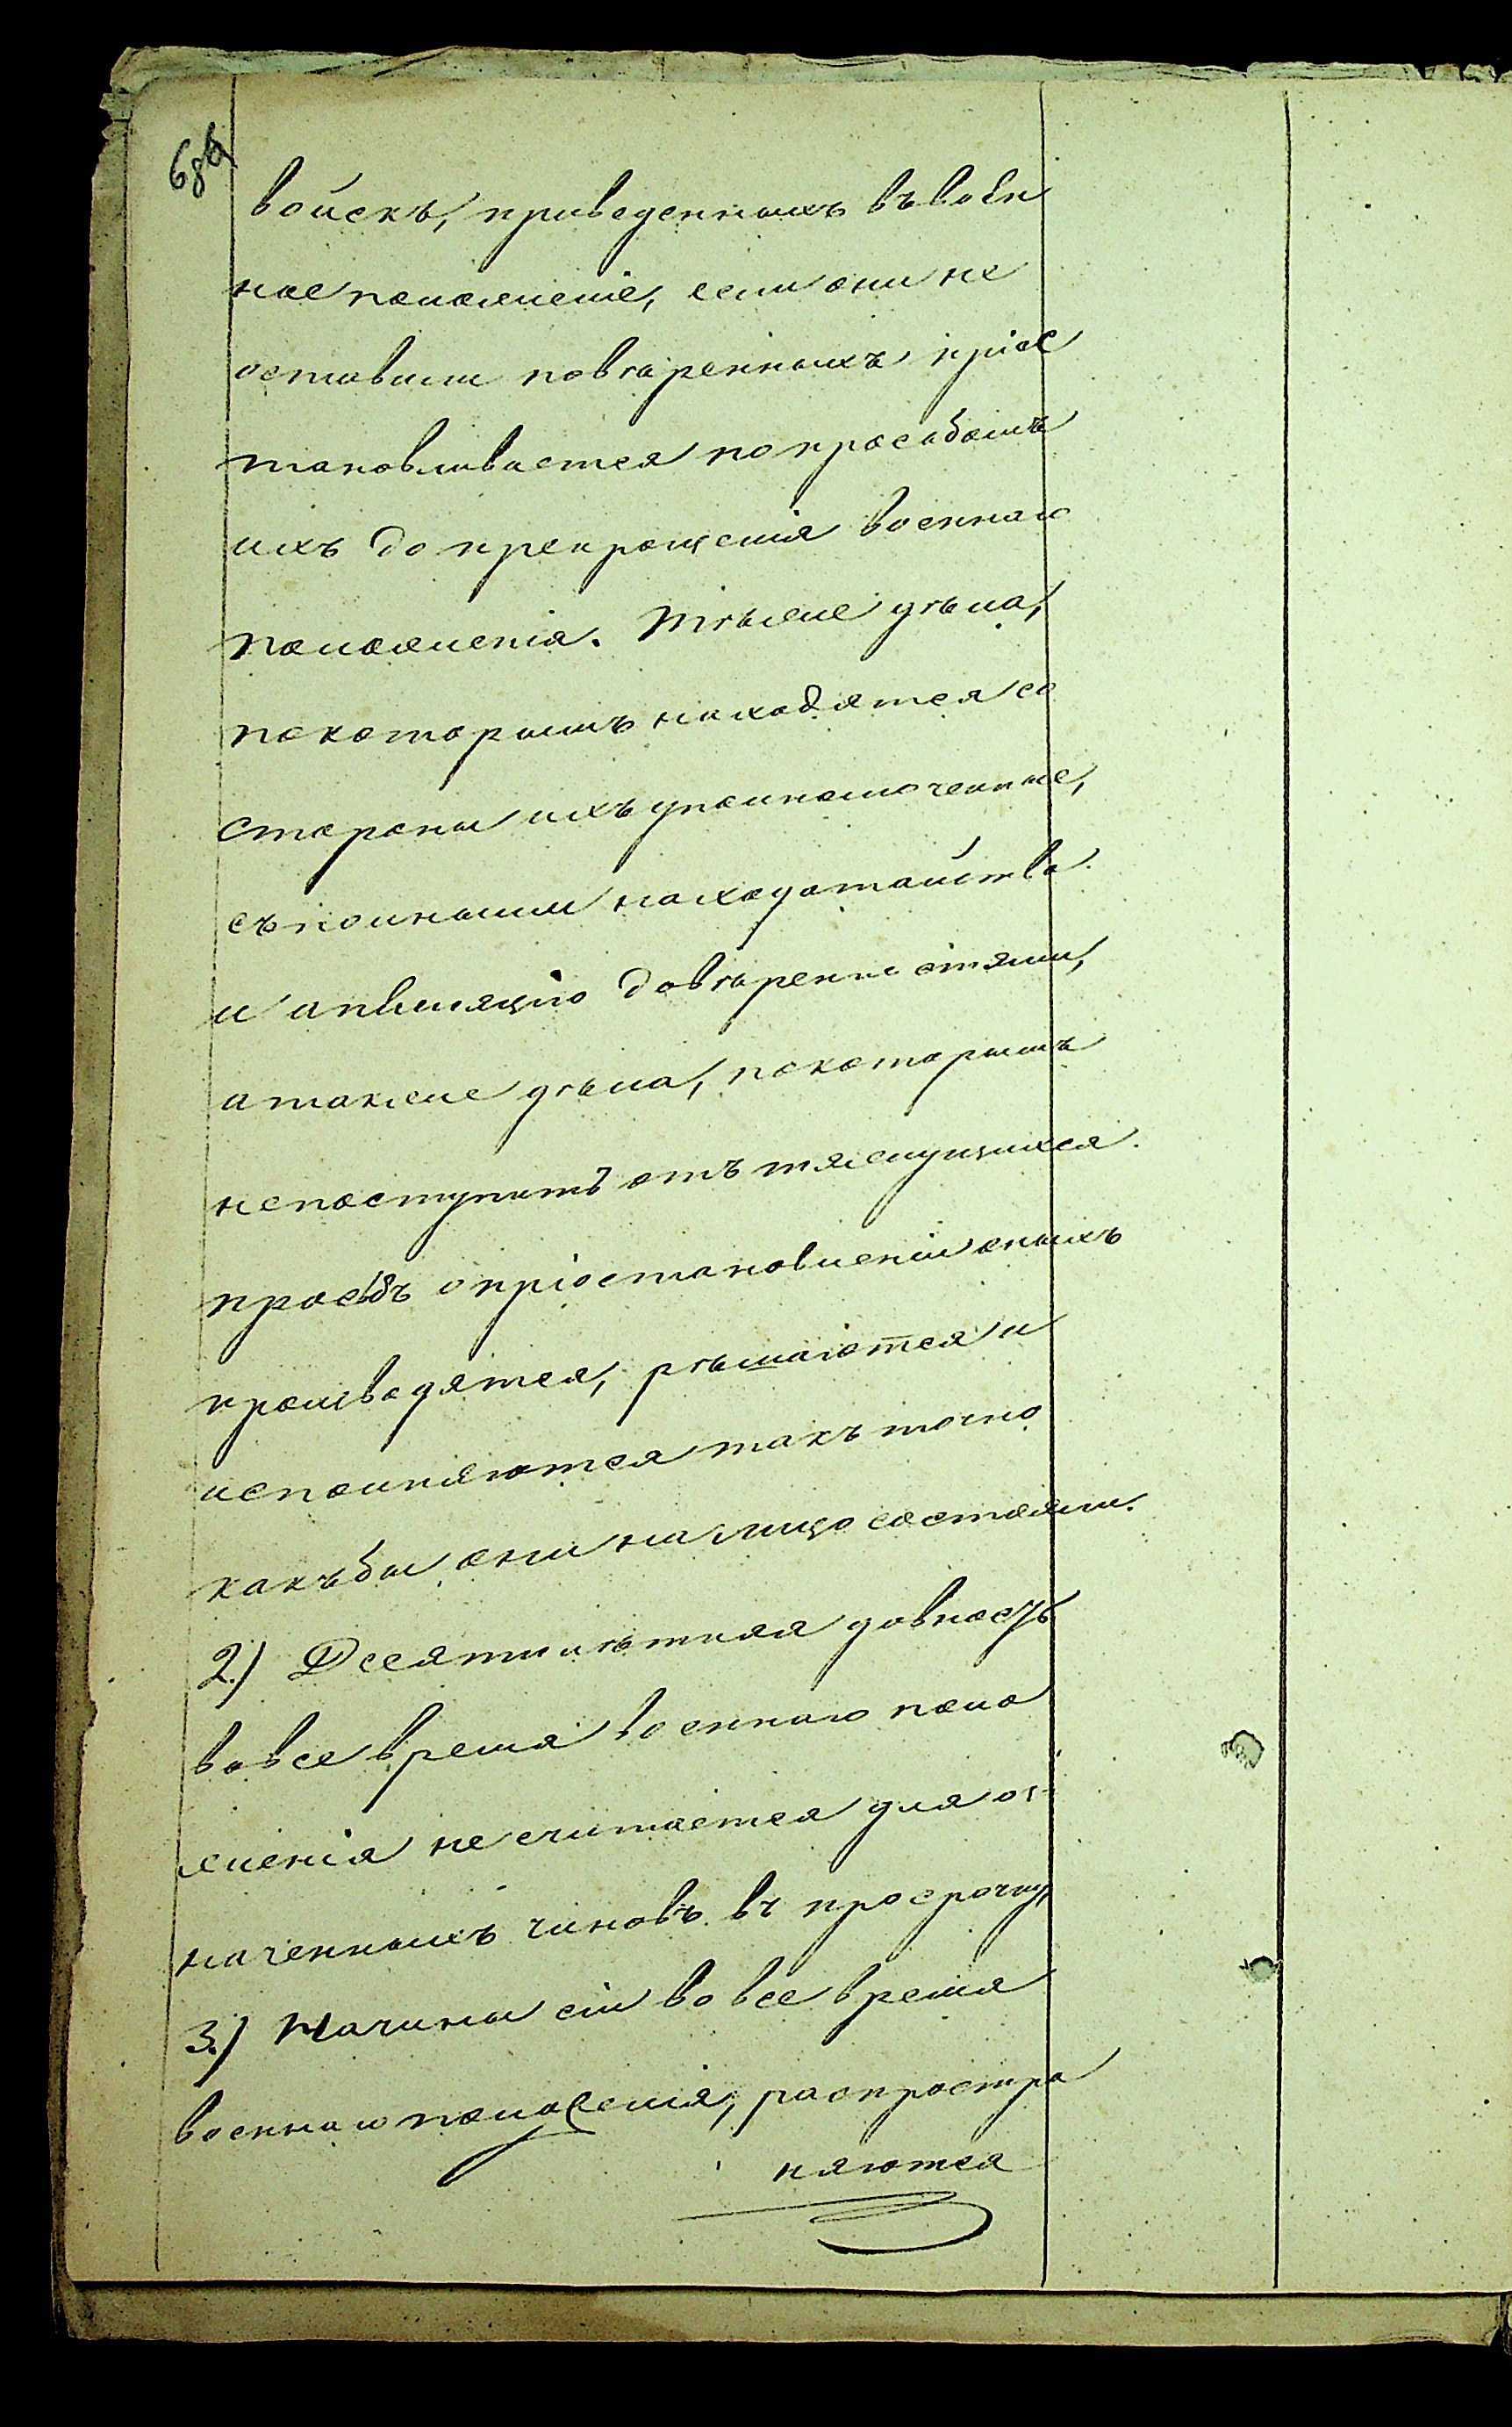 686
войскъ, приведенныхъ въ воен
ное положеніе, если они не
оставили повѣренныхъ пріос
тановливается по прозьбамъ
ихъ до прекращенія военнаго
положенія. Тѣ же дѣла,
по которымъ находятся со
стороны ихъ уполномоченные,
съ полными на ходатайство
и апеляцію довѣренностями,
а также дѣла, по которымъ
не поступитъ отъ тяжущихся
прозьбъ о пріостановленіи оныхъ
производятся, рѣшаются и
исполняются такъ точно
какъ бы они на лицо состояли.
2.) Десятилѣтняя давность
во все время военнаго поло
женія не считается для оз-
наченныхъ чиновъ въ просрочку,
3.) На чины сіи во все время
военнаго положенія, распростра
няются